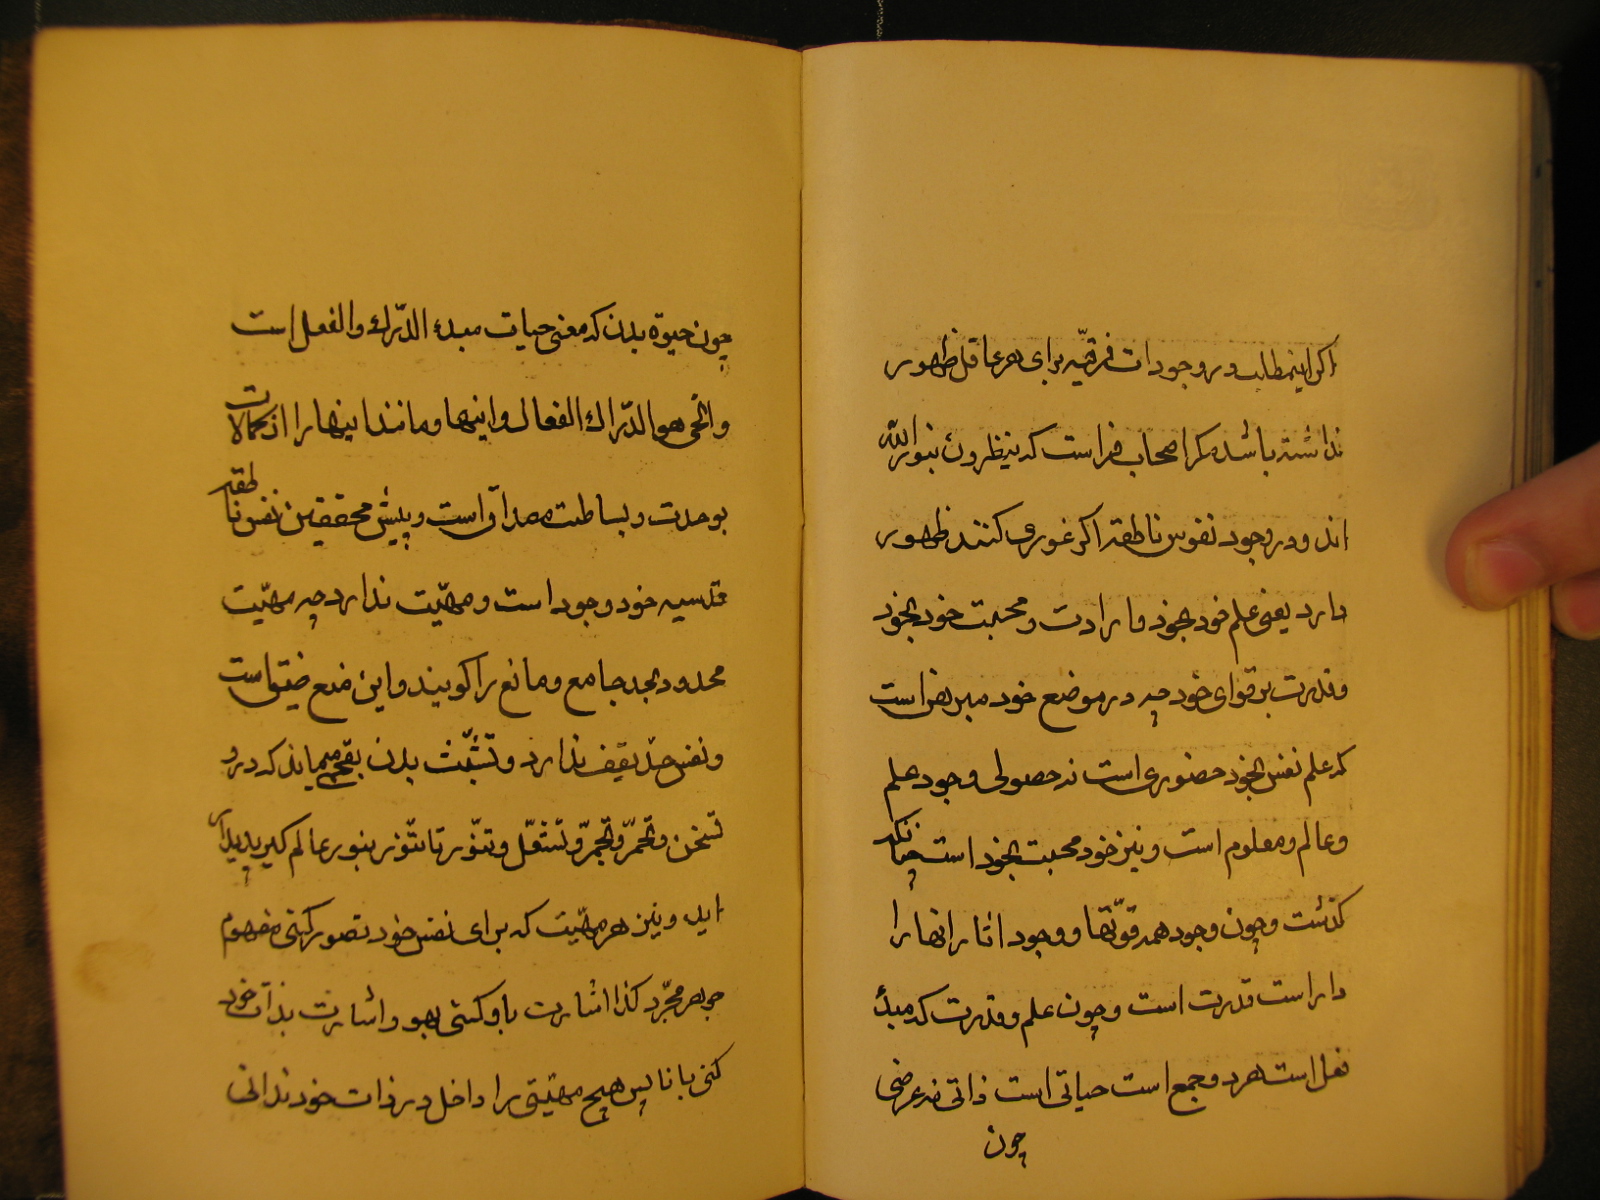 اکر اینمطالب در وجودات فرقیه برای هر عاقل ظهور
نداشته باشد مکر اصحاب فراست که ینظرون بنور الله
اند و در وجود نفوس ناطقه اکر غوری کنند ظهور
دارد یعنی علم خود بخود و ارادت و محبت خود بخود
و قدرت بر قوای خود چه در موضع خود مبرهن است
که علم نفس بخود حضوری است نه حصولی و جود علم
و عالم و معلوم است و نیز خود محبت بخود است چنانکه
کذشت و چون وجود همه قوتها و وجود اثار انها را
داراست قدرت است و چون علم و قدرت که مبدأ
فعل است هر دو جمع است حیاتی است ذاتی نه عرضی
چون
چون حیوة بدن که معنی حیات مبدء الدّرك والفعل است
والحی هو الدّراك الفعال و اینها و مانند اینها را از کمالات
بوحدت و بساطت مصداق است و پیش محققین نفس ناطقه
قدسیه خود وجود است و مهیّت ندارد چه مهیّت
محدود بحد جامع و مانع را کویند و این منع ضیق است
و نفس حدّ یقف ندارد و تشبّث بدن بقحم میماند که درو
تسخن و تحمّر و تجمّر و تشعّل و تنوّر تا تنوّر بنور عالم کیر پدید
اید و نیز هر مهیّت که برای نفس خود تصور کنی مفهوم
جوهر مجرّد کذا اشارت باو کنی بهو و اشارت بذات خود
کنی بانا پس هیچ مهیّتی را داخل در ذات خود ندانی